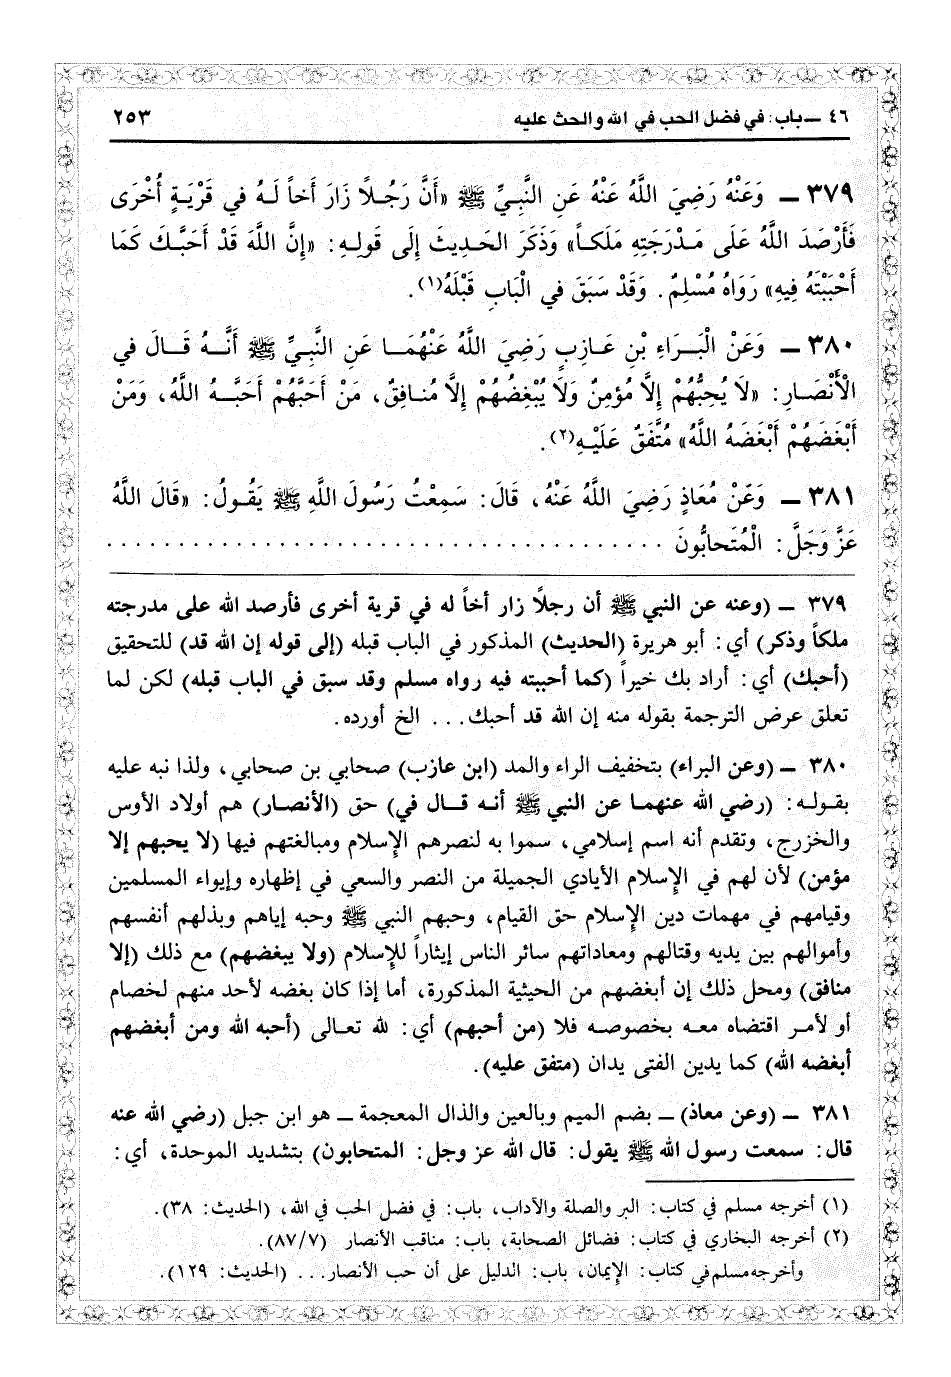 ٤٦ ـ باب: في فضل الحب في الله والحث عليه ٢٥٣
٣٧٩ ـ وَعَنْهُ رَضِيَ اللَّهُ عَنْهُ عَنِ النَّبِيِّ ﷺ «أَنَّ رَجُلاً زَارَ أَخاً لَهُ في قَرْيَةٍ أُخْرَى
فَأَرْصَدَ اللَّهُ عَلَى مَدْرَجَتِهِ مَلَكاً» وَذَكَرَ الحَدِيثَ إِلَى قَولِهِ: «إِنَّ اللَّهَ قَدْ أَحَبَّكَ كَمَا
أَحْبَبْتَهُ فِيهِ» رَوَاهُ مُسْلِمٌ. وَقَدْ سَبَقَ في الْبَابِ قَبْلَهُ(١).
٣٨٠ ـ وَعَنْ الْبَرَاءِ بْنِ عَازِبٍ رَضِيَ اللَّهُ عَنْهُمَا عَنِ النَّبِيِّ ﷺ أَنَّهُ قَالَ في
الْأَنْصَارِ: «لَا يُحِبُّهُمْ إِلَّا مُؤمِنٌ وَلَا يُبْغِضُهُمْ إِلَّا مُنافِقٌ، مَنْ أَحَبَّهُمْ أَحَبَّهُ اللَّهُ، وَمَنْ
أَبْغَضَهُمْ أَبْغَضَهُ اللَّهُ» مُتَّفَقٌ عَلَيْهِ(٢).
٣٨١ ـ وَعَنْ مُعَاذٍ رَضِيَ اللَّهُ عَنْهُ، قَالَ: سَمِعْتُ رَسُولَ اللَّهِ ﷺ يَقُولُ: «قَالَ اللَّهُ
عَزَّ وَجَلَّ: الْمُتَحابُّونَ . . . . . . . . . . . . . . . . . . . . . . . . . . . . . . . . . . . . . .
٣٧٩ ـ (وعنه عن النبي ﷺ أن رجلاً زار أخاً له في قرية أخرى فأرصد الله على مدرجته
ملكاً وذكر) أي: أبو هريرة (الحديث) المذكور في الباب قبله (إلى قوله إن الله قد) للتحقيق
(أحبك) أي: أراد بك خيراً (كما أحببته فيه رواه مسلم وقد سبق في الباب قبله) لكن لما
تعلق عرض الترجمة بقوله منه إن الله قد أحبك. . . الخ أورده.
٣٨٠ ـ (وعن البراء) بتخفيف الراء والمد (ابن عازب) صحابي بن صحابي، ولذا نبه عليه
بقوله: (رضي الله عنهما عن النبي ﷺ أنه قال في) حق (الأنصار) هم أولاد الأوس
والخزرج، وتقدم أنه اسم إسلامي، سموا به لنصرهم الإسلام ومبالغتهم فيها (لا يحبهم إلا
مؤمن) لأن لهم في الإسلام الأيادي الجميلة من النصر والسعي في إظهاره وإيواء المسلمين
وقيامهم في مهمات دين الإسلام حق القيام، وحبهم النبي ﷺ وحبه إياهم وبذلهم أنفسهم
وأموالهم بين يديه وقتالهم ومعاداتهم سائر الناس إيثاراً للإسلام (ولا يبغضهم) مع ذلك (إلا
منافق) ومحل ذلك إن أبغضهم من الحيثية المذكورة، أما إذا كان بغضه لأحد منهم لخصام
أو لأمر اقتضاه معه بخصوصه فلا (من أحبهم) أي: لله تعالى (أحبه الله ومن أبغضهم
أبغضه الله) كما يدين الفتى يدان (متفق عليه).
٣٨١ ـ (وعن معاذ) ـ بضم الميم وبالعين والذال المعجمة ـ هو ابن جبل (رضي الله عنه
قال: سمعت رسول الله ﷺ يقول: قال الله عز وجل: المتحابون) بتشديد الموحدة، أي:
(١) أخرجه مسلم في كتاب: البر والصلة والآداب، باب: في فضل الحب في الله، (الحديث: ٣٨).
(٢) أخرجه البخاري في كتاب: فضائل الصحابة، باب: مناقب الأنصار (٨٧/٧).
وأخرجه مسلم في كتاب: الإيمان، باب: الدليل على أن حب الأنصار. . . (الحديث: ١٢٩).